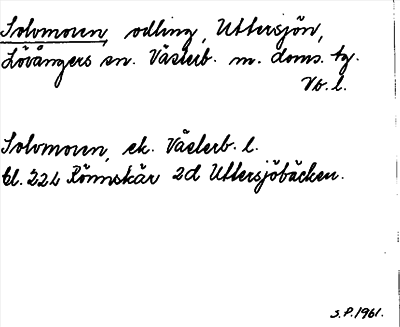 Solomoren, odling, Uttersjön,
Lövångers sn. Västerb. m. doms. tg.
Vb. l.
Solomoren, ek. Västerb. l.
bl. 22L Rönnskär 2d Uttersjöbäcken.
S.P. 1961.